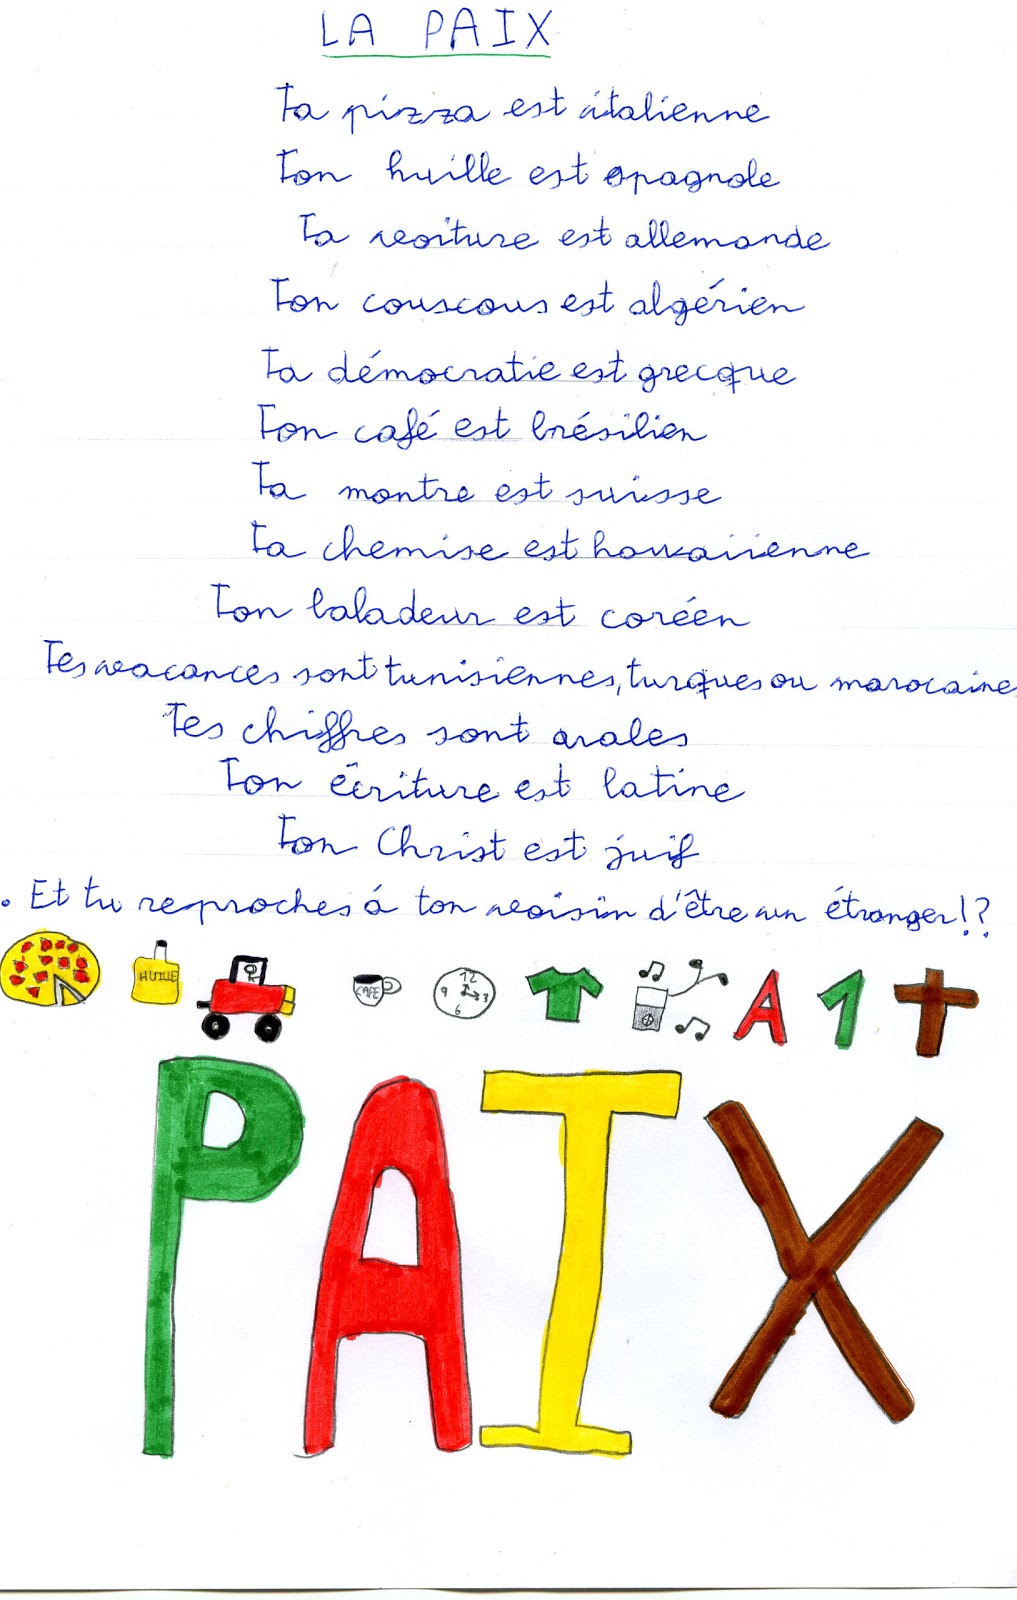 LA PAIX
Ta pizza est italienne
Ton huille est epagnole
Ta voiture est allemande
Ton couscous est algérien
Ta démocratie est grecque
Ton café est brésilien
Ta montre est suisse
Ta chemise est hawaiienne
Ton baladeur est coréen
Tes vacances sont tunisiennes, turques ou marocaines
Tes chiffres sont arabes
Ton écriture est latine
Ton Christ est juif
. Et tu reproches á ton voisin d'être un étranger!?
HUILE
CAFE
12
9 3
6
A 1
PAIX